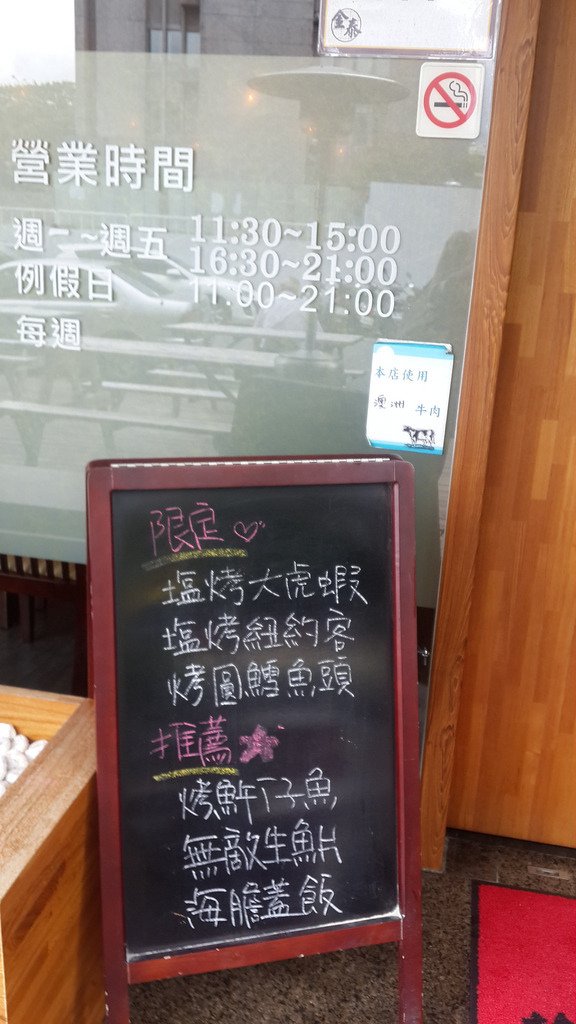 金泰
營業時間
週一~週五 11:30~15:00
16:30~21:00
例假日 11:00~21:00
每週
本店使用
澳洲 牛肉
限定♡
塩烤大虎蝦
塩烤紐約客
烤圓鱈魚頭
推薦★
烤魽下子魚
無敵生魚片
海膽蓋飯